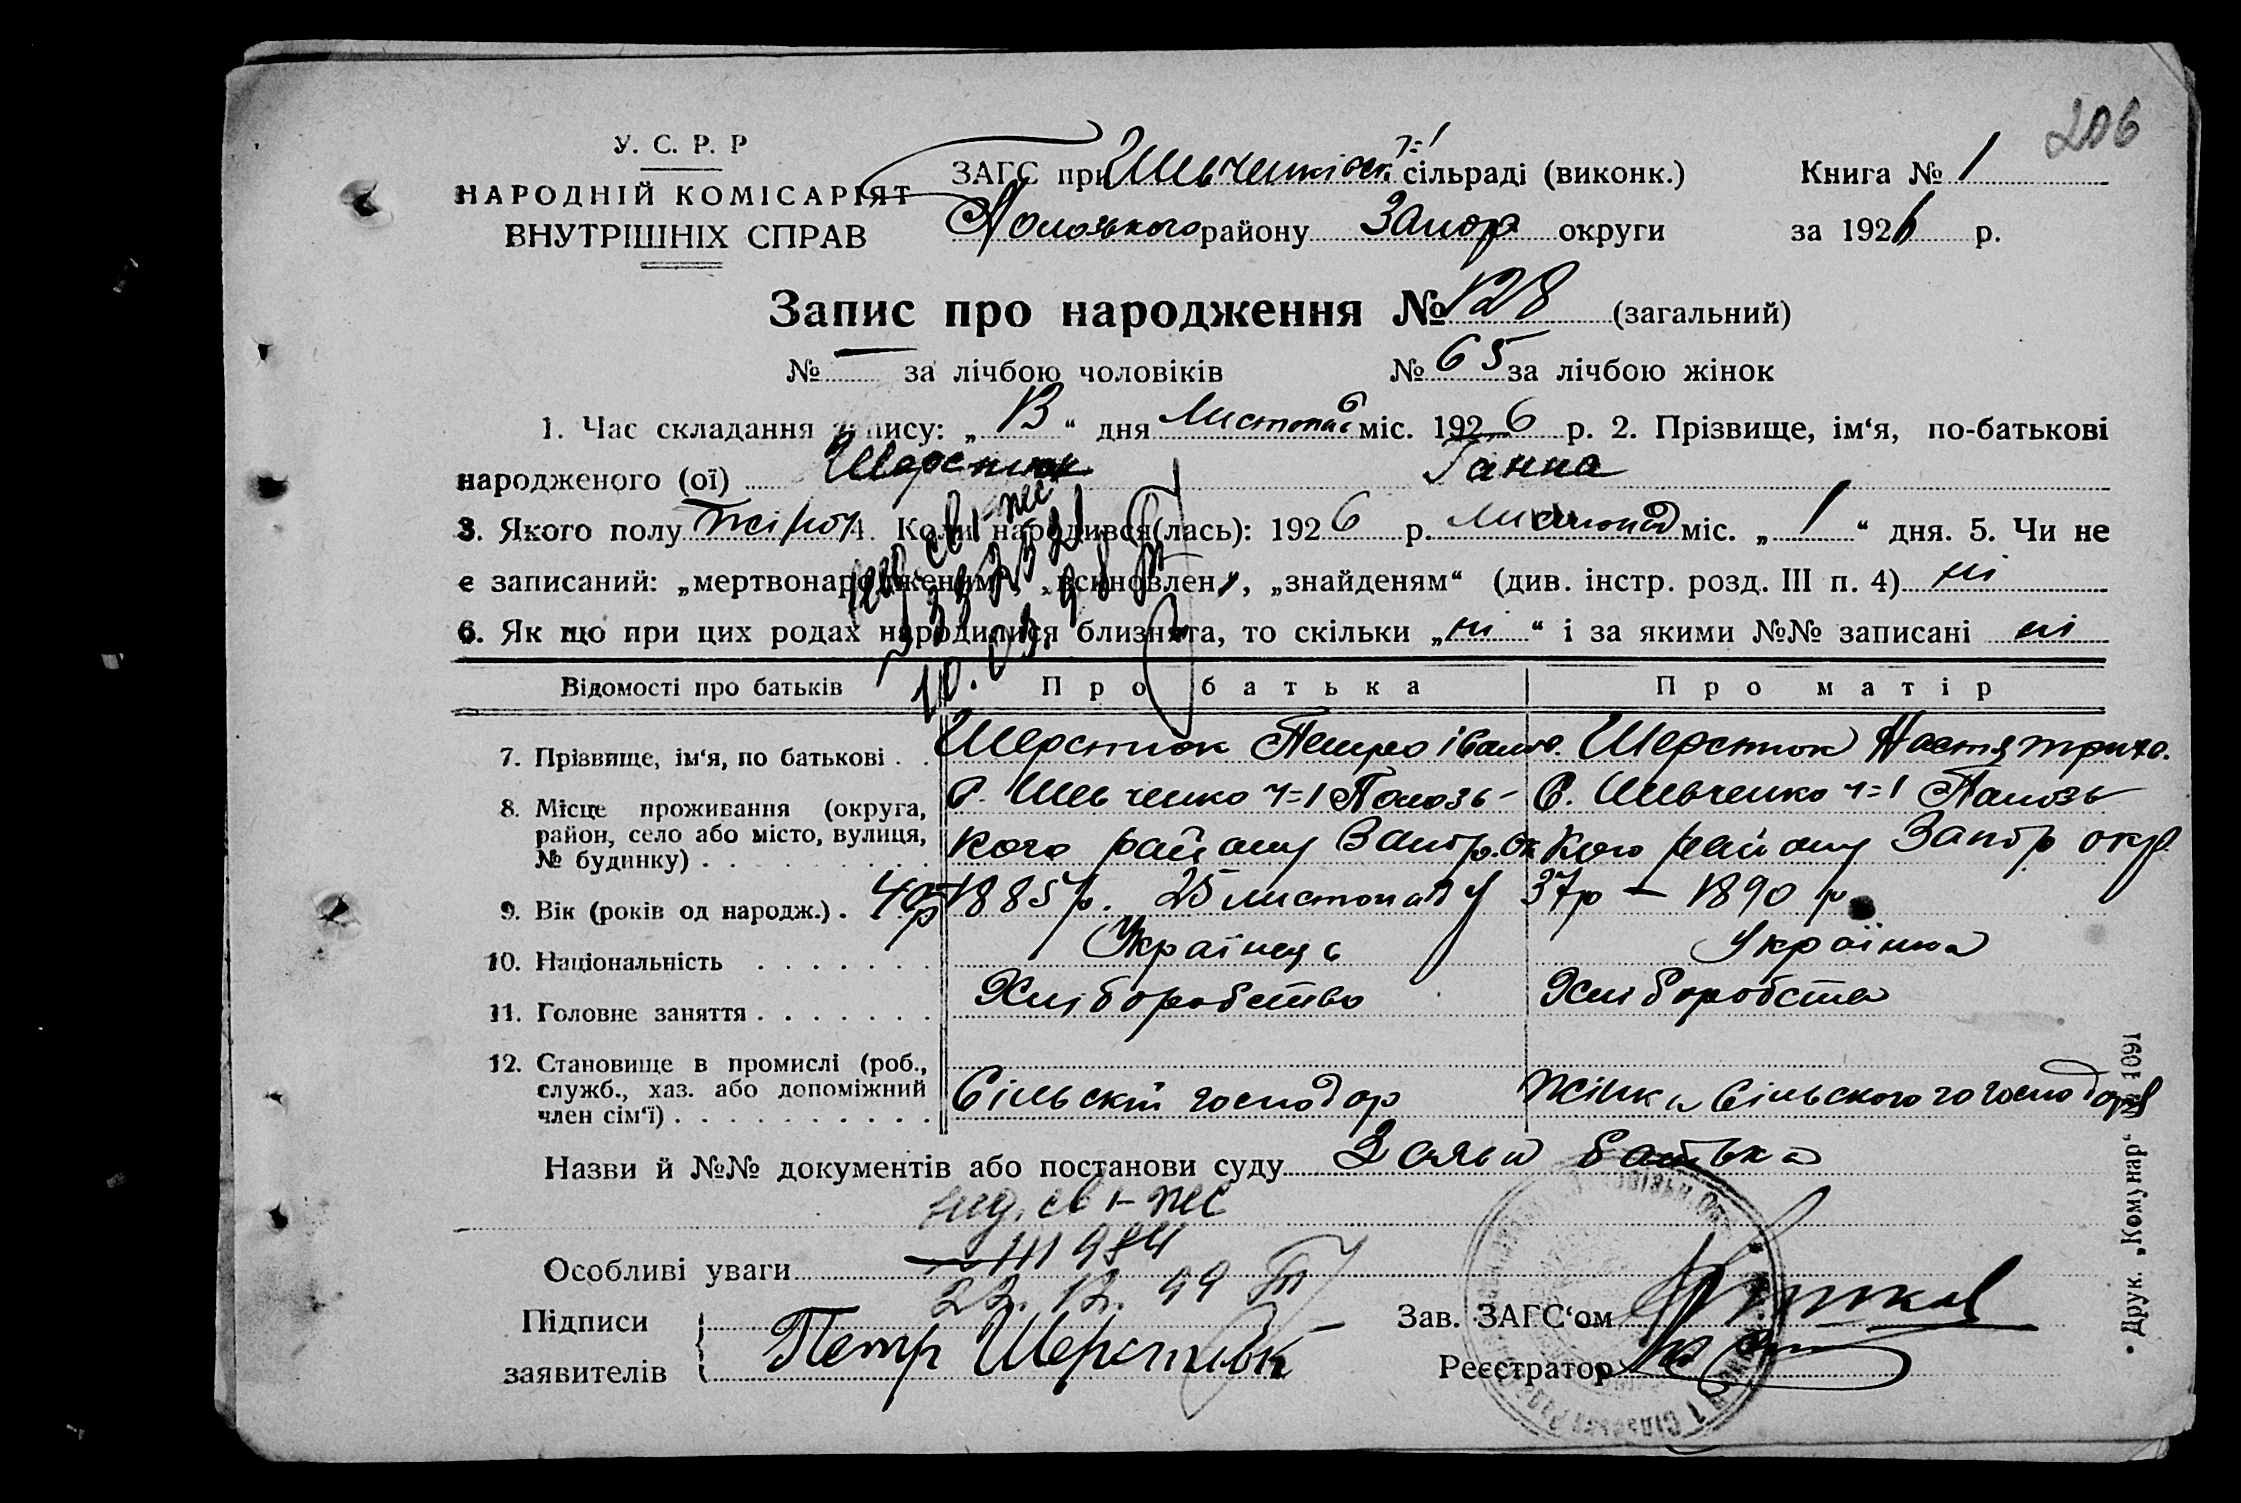 206
У. С. Р. Р
НАРОДНІЙ КОМІСАРІЯТ
ВНУТРІШНІХ СПРАВ
ЗАГС при Шевченківск ч=1 сільраді (виконк.) Книга № 1
Пологзького району Запор округи за 1926 р.
Запис про народження № 128 (загальний)
№ — за лічбою чоловіків № 65 за лічбою жінок
1. Час складання запису: „ 13 “ дня Листопад міс. 1926 р. 2. Прізвище, ім‘я, по-батькові
народженого (ої) Шерстюк Ганна
3. Якого полу жіноч 4. Коли народився(лась): 1926 р. листопад міс. „ 1 “ дня. 5. Чи не
є записаний: „мертвонародженим“, „всиновлен“, „знайденям“ (див. інстр. розд. III п. 4) ні
6. Як що при цих родах народилися близнята, то скільки „ ні “ і за якими №№ записані ні
Відомості про батьків Про батька Про матір
7. Прізвище, ім‘я, по батькові . . Шерстюк Петро іванов. Шерстюк Настя трихо.
8. Місце проживання (округа, район, село або місто, вулиця, № будинку) С. Шевченко ч=1 Полозь- С. Шевченко ч=1 Полозь
кого району Запор. Ок кого району Запор окр
9. Вік (років од народж.) . 40р 1885р. 25 листопаду 37р — 1890 р
10. Національність Українець Українка
11. Головне заняття Хліборобство Хліборобства
12. Становище в промислі (роб., служб., хаз. або допоміжний член сім‘ї) Сільскій господар Жінка Сільского господаря
Назви й №№ документів або постанови суду Заява батька
св I-ЖС
Особливі уваги 111984
22. 12. 99
Підписи заявителів Петр Шерстюк
Зав. ЗАГС‘ом
Реєстратор
• Друк. „Комунар“ 1091